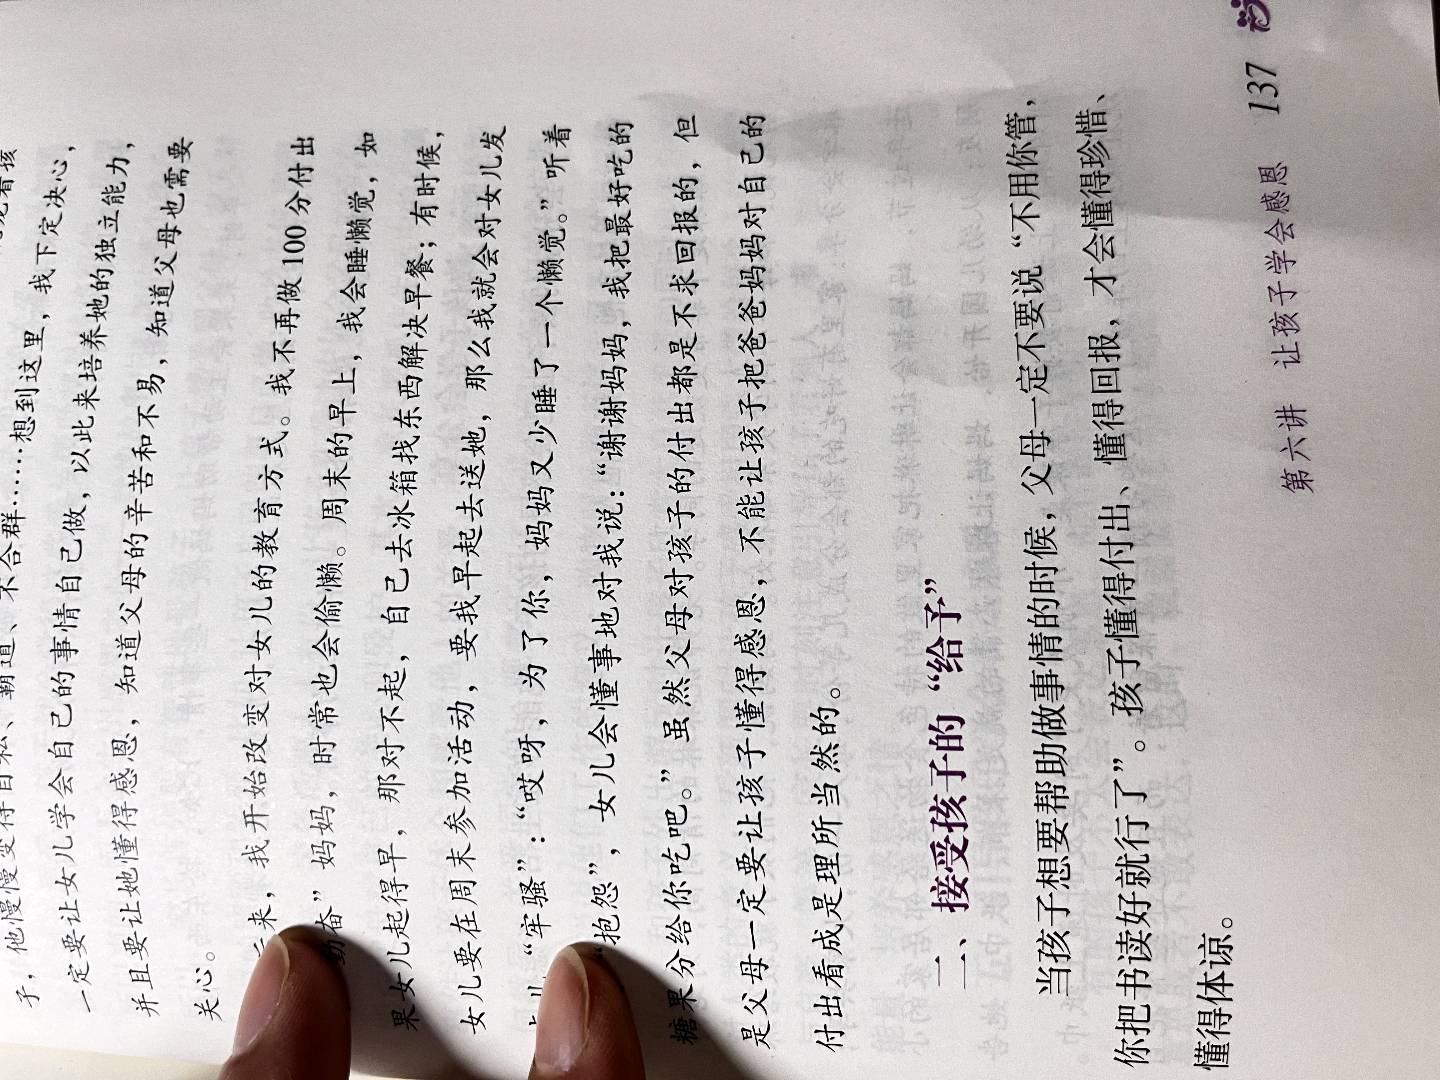 子，他慢慢变得自私、霸道、不合群……想到这里，我下定决心，
一定要让女儿学会自己的事情自己做，以此来培养她的独立能力，
并且要让她懂得感恩，知道父母的辛苦和不易，知道父母也需要
关心。
来，我开始改变对女儿的教育方式。我不再做100分付出
勤奋”妈妈，时常也会偷懒。周末的早上，我会睡懒觉，如
果女儿起得早，那对不起，自己去冰箱找东西解决早餐；有时候，
女儿要在周末参加活动，要我早起去送她，那么我就会对女儿发
“牢骚”：“哎呀，为了你，妈妈又少睡了一个懒觉。”听着
“抱怨”，女儿会懂事地对我说：“谢谢妈妈，我把最好吃的
糖果分给你吃吧。”虽然父母对孩子的付出都是不求回报的，但
是父母一定要让孩子懂得感恩，不能让孩子把爸爸妈妈对自己的
付出看成是理所当然的。
二、接受孩子的“给予”
当孩子想要帮助做事情的时候，父母一定不要说“不用你管，
你把书读好就行了”。孩子懂得付出、懂得回报，才会懂得珍惜、
懂得体谅。
第六讲 让孩子学会感恩 137